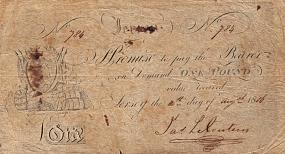 No 784 Jersey No 784
I Promise to pay the Bearer
on Demand ONE POUND
value received
Jersey the 2d day of Augst 1813
£ One